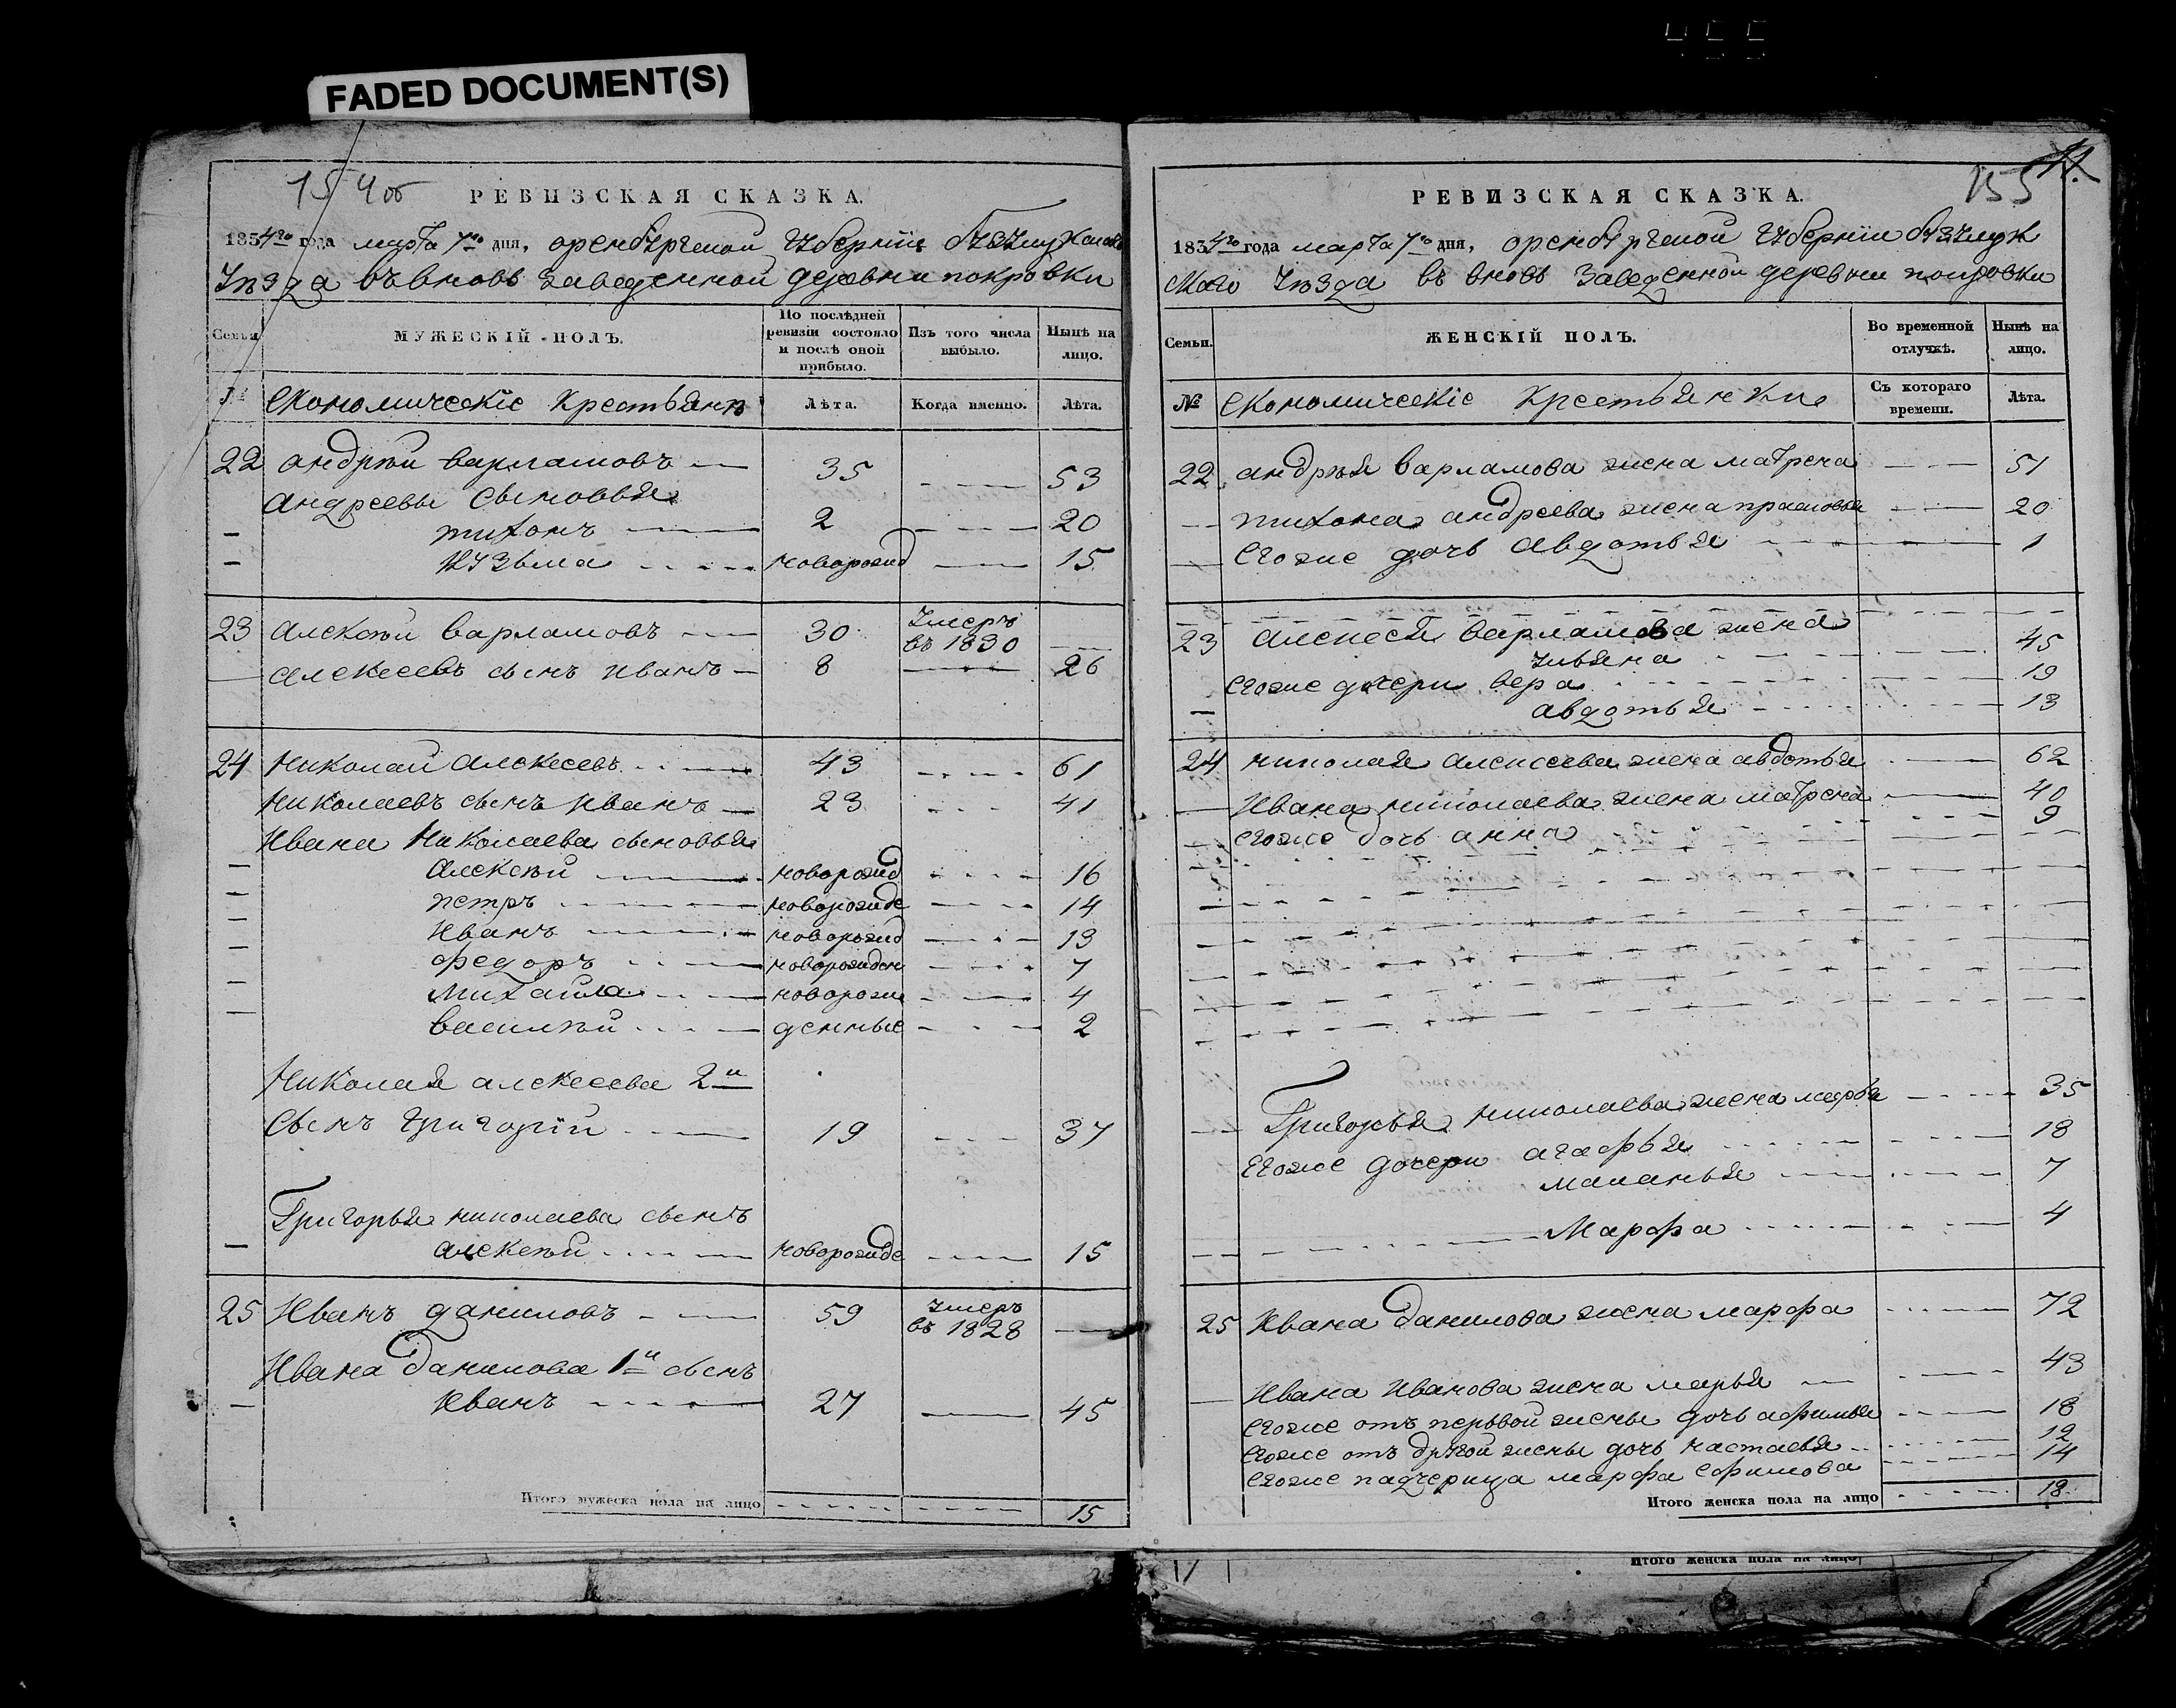 FADED DOCUMENT(S)
154 об
РЕВИЗСКАЯ СКАЗКА.
1834го года марта 7го дня, оренбургской губернии бузулукскаго
Уезда въ вновь заведенной деревни покровки
Семьи
МУЖЕСКІЙ ПОЛЪ.
По послѣдней ревизіи состояло и послѣ оной прибыло.
Изъ того числа выбыло.
Нынѣ на лицо.
№
Економическіе Крестьянѣ
Лѣта.
Когда именно.
Лѣта.
22 андрѣй варламовъ 35 53
андреевы сыновья
тихонъ 2 20
кузьма новорожд 15
23 алексѣй варламовъ 30 умеръ въ 1830
алексеевъ сынъ иванъ 8 26
24 николай алексеевъ 43 61
николаевъ сынъ иванъ 23 41
Ивана николаева сыновья
алексѣй новорожд 16
петръ новорожде 14
иванъ новорожд 13
федоръ новорожден 7
михайла новорож 4
василѣй денные 2
николая алексеева 2й
сынъ григорій 19 37
Григорья николаева сынъ
алексѣй новорожде 15
25 Иванъ даниловъ 59 умеръ въ 1828
Ивана данилова 1й сынъ
иванъ 27 45
Итого мужеска пола на лицо 15
155
11.
РЕВИЗСКАЯ СКАЗКА.
1834го года марта 7го дня, оренбургской губерніи бузулук
скаго уѣзда въ вновь заведенной деревни покровки
Семьи.
ЖЕНСКІЙ ПОЛЪ.
Во временной отлучкѣ.
Нынѣ на лицо.
№
Економическіе крестьянки
Съ котораго времени.
Лѣта.
22 андрѣя варламова жена матрена 51
тихона андреева жена прасковья 20
егоже дочь авдотья 1
23 алексея варламова жена
ульяна 45
егоже дочери вера 19
авдотья 13
24 николая алексеева жена авдотья 62
Ивана николаева жена матрена 40
егоже дочь анна 9
Григорья николаева жена марфа 35
егоже дочери агафья 18
маланья 7
Марфа 4
25 Ивана данилова жена марфа 72
Ивана Иванова жена марья 43
егоже отъ перьвой жены дочь афимья 18
егоже отъ другой жены дочь настасья 12
егоже падчерица марфа ефимова 14
Итого женска пола на лицо 18
Итого женска пола на лицо